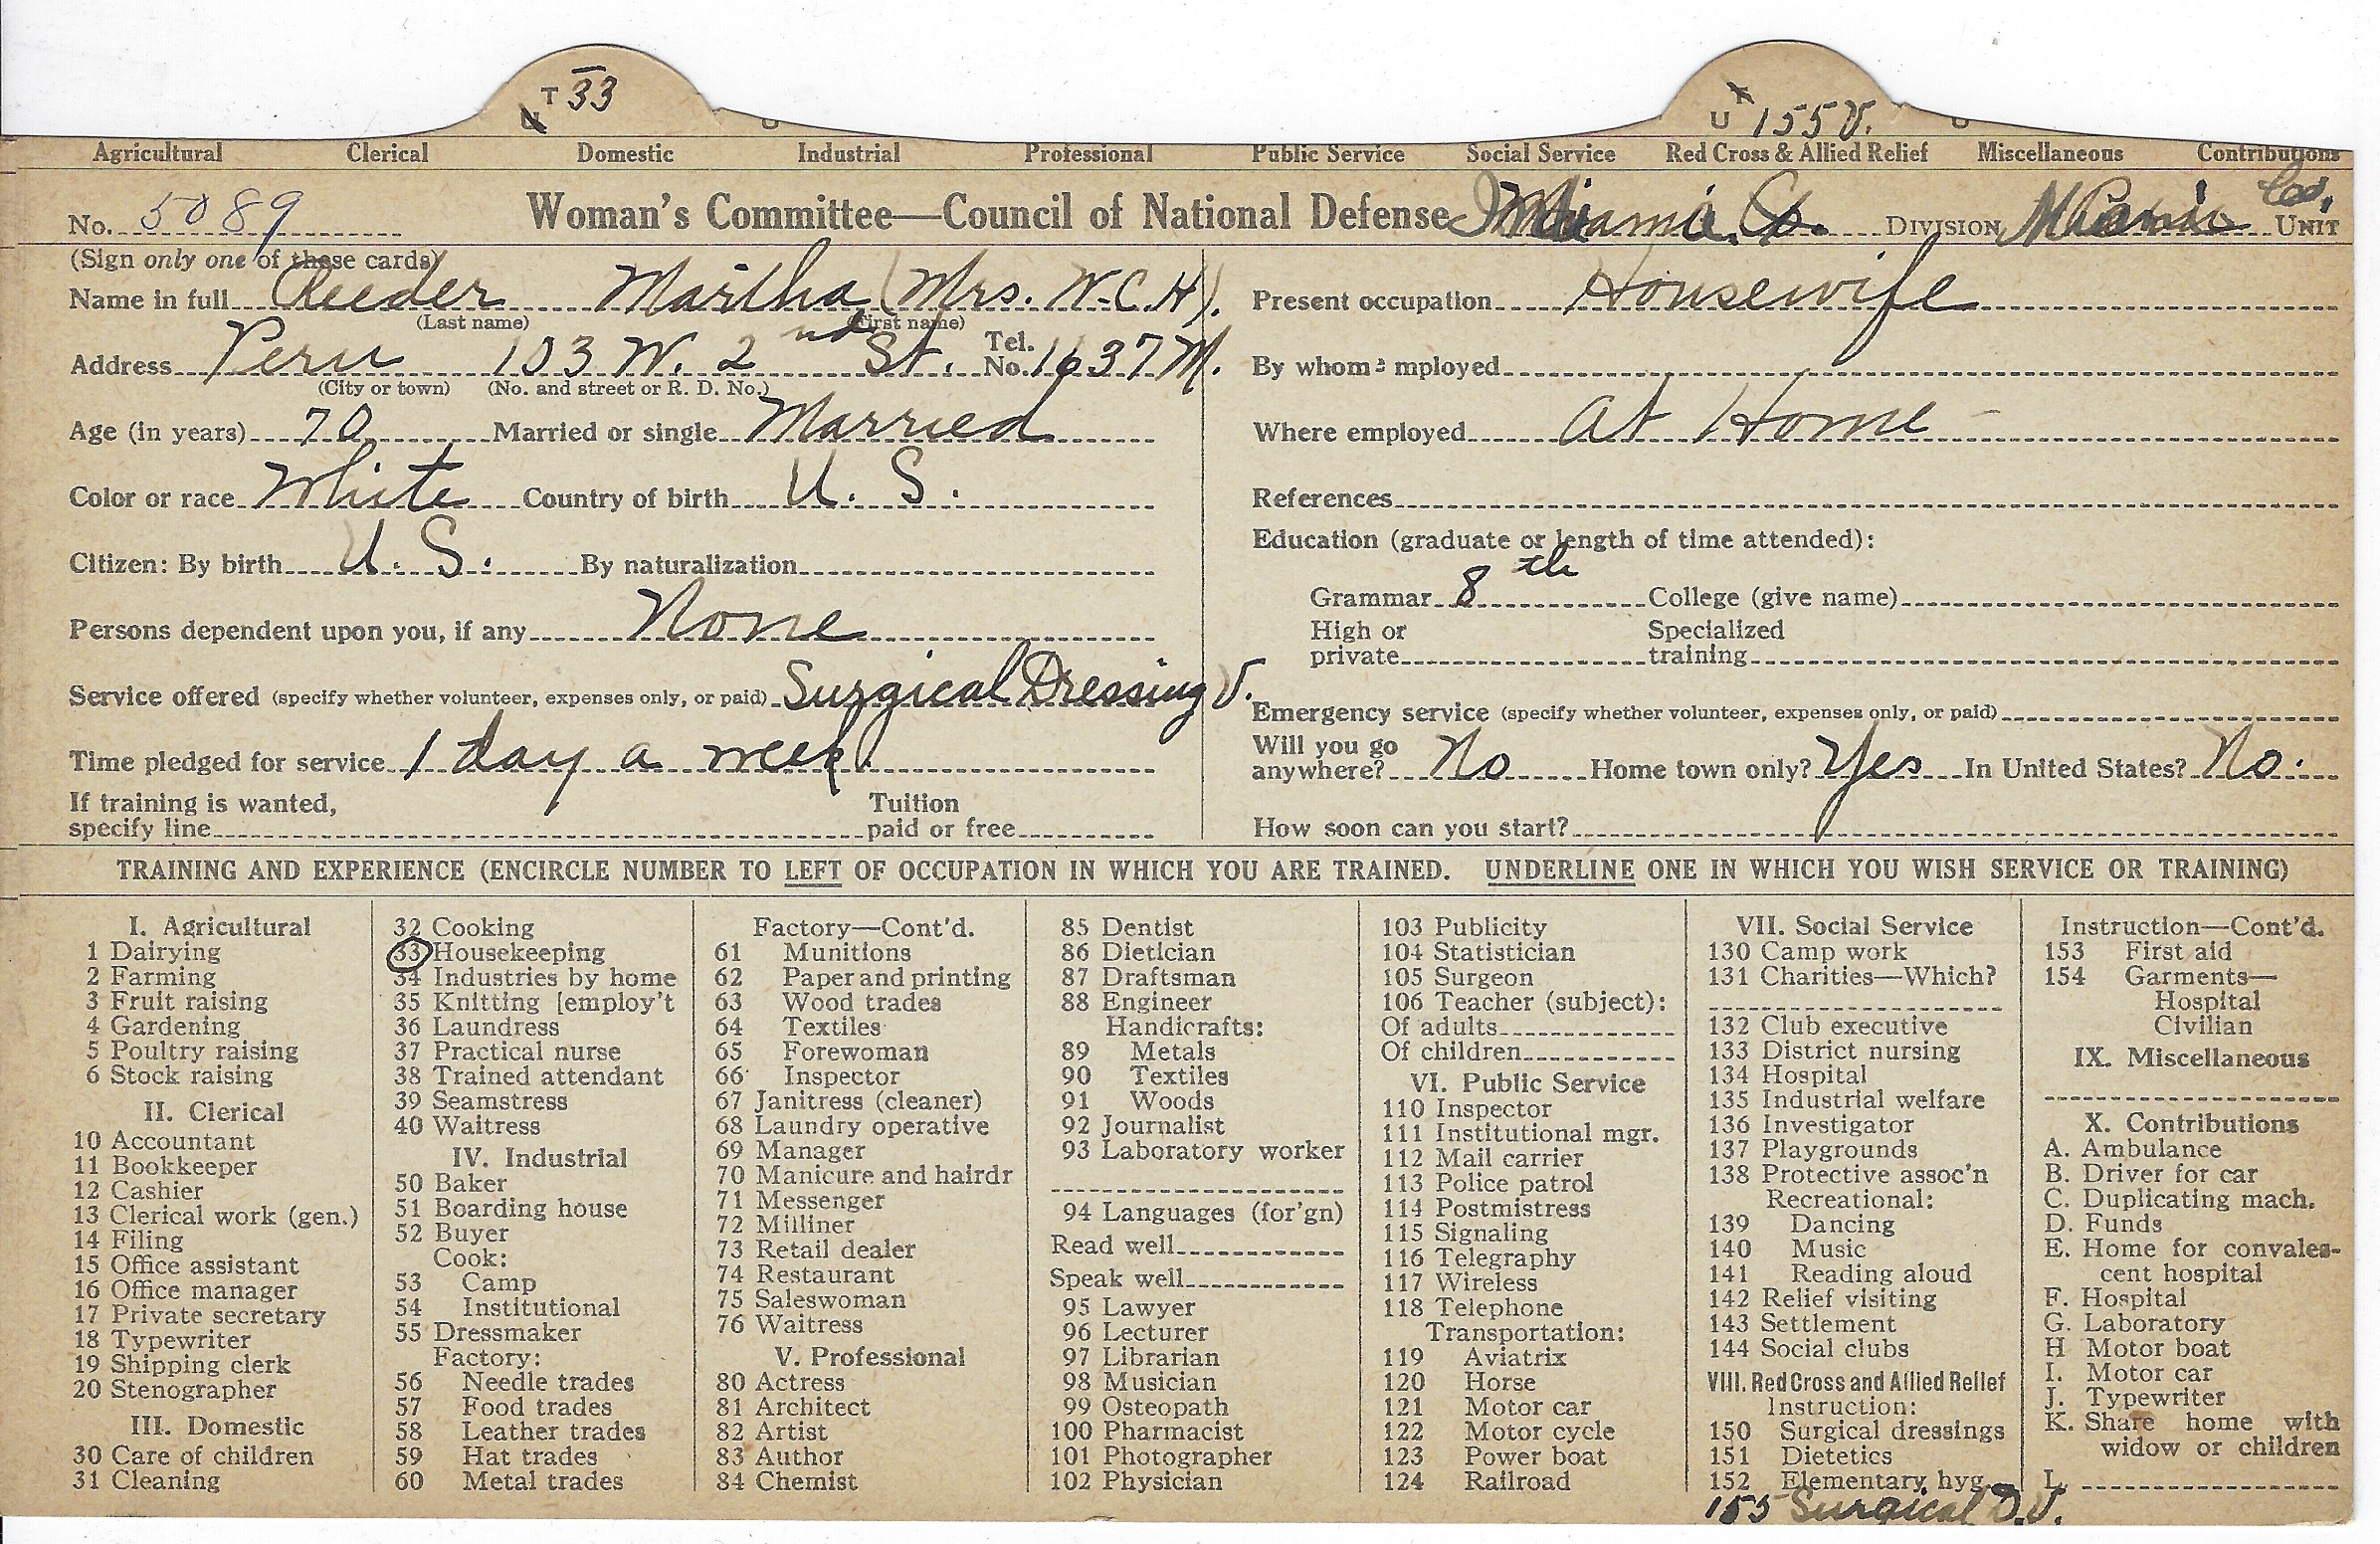 T 33
U 155 V.
Agricultural Clerical Domestic Industrial Professional Public Service Social Service Red Cross & Allied Relief Miscellaneous Contributions
No. 5089 Woman's Committee—Council of National Defense Miami Co. DIVISION Miami Co. UNIT
(Sign only one of these cards)
Name in full Reeder Martha (Mrs. W.C.H).
(Last name) (First name)
Address Peru 103 W. 2nd St. Tel. No. 1637 M.
(City or town) (No. and street or R. D. No.)
Age (in years) 70 Married or single Married
Color or race White Country of birth U. S.
Citizen: By birth U. S. By naturalization
Persons dependent upon you, if any None
Service offered (specify whether volunteer, expenses only, or paid) Surgical Dressing V.
Time pledged for service 1 day a week.
If training is wanted,
specify line Tuition paid or free
Present occupation Housewife
By whom employed
Where employed At Home
References
Education (graduate or length of time attended):
Grammar 8th College (give name)
High or private Specialized training
Emergency service (specify whether volunteer, expenses only, or paid)
Will you go anywhere? No Home town only? Yes In United States? No.
How soon can you start?
TRAINING AND EXPERIENCE (ENCIRCLE NUMBER TO LEFT OF OCCUPATION IN WHICH YOU ARE TRAINED. UNDERLINE ONE IN WHICH YOU WISH SERVICE OR TRAINING)
I. Agricultural
1 Dairying
2 Farming
3 Fruit raising
4 Gardening
5 Poultry raising
6 Stock raising
II. Clerical
10 Accountant
11 Bookkeeper
12 Cashier
13 Clerical work (gen.)
14 Filing
15 Office assistant
16 Office manager
17 Private secretary
18 Typewriter
19 Shipping clerk
20 Stenographer
III. Domestic
30 Care of children
31 Cleaning
32 Cooking
33 Housekeeping
34 Industries by home
35 Knitting [employ't
36 Laundress
37 Practical nurse
38 Trained attendant
39 Seamstress
40 Waitress
IV. Industrial
50 Baker
51 Boarding house
52 Buyer
Cook:
53 Camp
54 Institutional
55 Dressmaker
Factory:
56 Needle trades
57 Food trades
58 Leather trades
59 Hat trades
60 Metal trades
Factory—Cont'd.
61 Munitions
62 Paper and printing
63 Wood trades
64 Textiles
65 Forewoman
66 Inspector
67 Janitress (cleaner)
68 Laundry operative
69 Manager
70 Manicure and hairdr
71 Messenger
72 Milliner
73 Retail dealer
74 Restaurant
75 Saleswoman
76 Waitress
V. Professional
80 Actress
81 Architect
82 Artist
83 Author
84 Chemist
85 Dentist
86 Dietician
87 Draftsman
88 Engineer
Handicrafts:
89 Metals
90 Textiles
91 Woods
92 Journalist
93 Laboratory worker
94 Languages (for'gn)
Read well
Speak well
95 Lawyer
96 Lecturer
97 Librarian
98 Musician
99 Osteopath
100 Pharmacist
101 Photographer
102 Physician
103 Publicity
104 Statistician
105 Surgeon
106 Teacher (subject):
Of adults
Of children
VI. Public Service
110 Inspector
111 Institutional mgr.
112 Mail carrier
113 Police patrol
114 Postmistress
115 Signaling
116 Telegraphy
117 Wireless
118 Telephone
Transportation:
119 Aviatrix
120 Horse
121 Motor car
122 Motor cycle
123 Power boat
124 Railroad
VII. Social Service
130 Camp work
131 Charities—Which?
132 Club executive
133 District nursing
134 Hospital
135 Industrial welfare
136 Investigator
137 Playgrounds
138 Protective assoc'n
Recreational:
139 Dancing
140 Music
141 Reading aloud
142 Relief visiting
143 Settlement
144 Social clubs
VIII. Red Cross and Allied Relief
Instruction:
150 Surgical dressings
151 Dietetics
152 Elementary hyg.
155 Surgical D.V.
Instruction—Cont'd.
153 First aid
154 Garments—
Hospital
Civilian
IX. Miscellaneous
X. Contributions
A. Ambulance
B. Driver for car
C. Duplicating mach.
D. Funds
E. Home for convales-
cent hospital
F. Hospital
G. Laboratory
H Motor boat
I. Motor car
J. Typewriter
K. Share home with
widow or children
L.